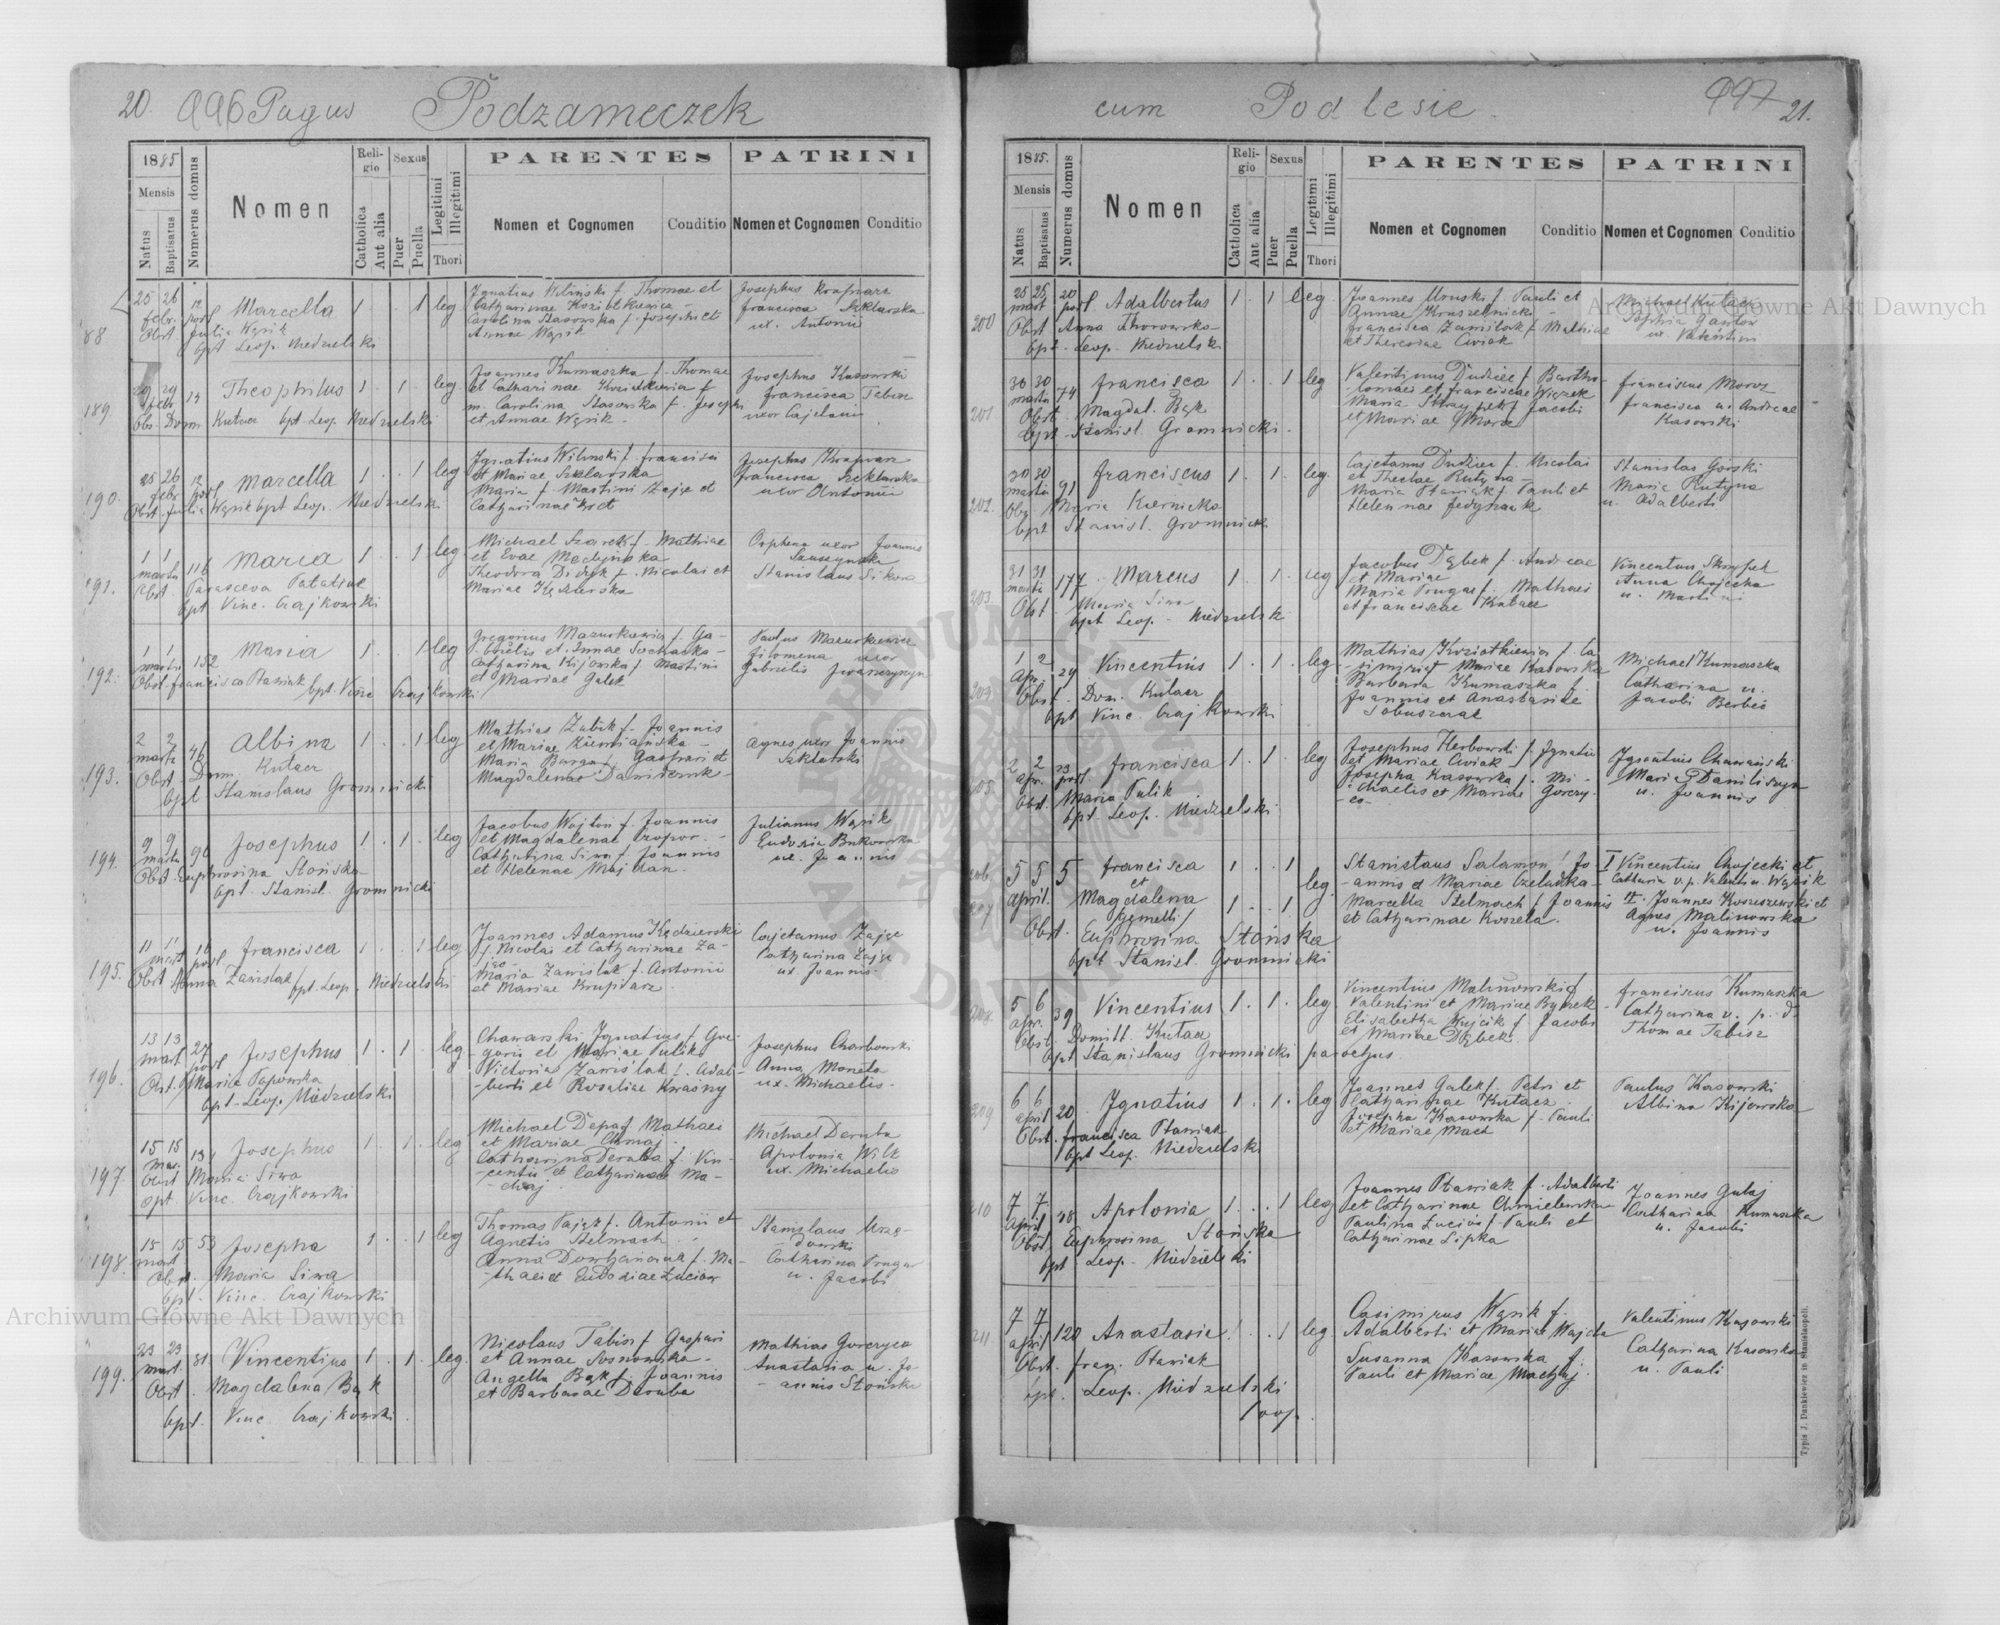 20. 996 Pagus Podzameczek
1885
Mensis
Natus
Baptisatus
Numerus domus
Nomen
Religio
Catholica
Aut alia
Sexus
Puer
Puella
Legitimi
Illegitimi
Thori
PARENTES
Nomen et Cognomen
Conditio
PATRINI
Nomen et Cognomen
Conditio
25 26 12 Marcella 1 . . 1 leg
febr. posl
Obst Julia Wąsik
bpt Leop. Niedzielski
Ignatius Wiliński f. Thomae et
Catharinae Koziołkiewicz
Carolina Stasowska f. Josephi et
Annae Wąsik
Josephus
francisca Szklarska
ux. Antonii
189.
29 29 14 Theophilus 1 . 1 . leg
febr
Obs. Dom Kutacz bpt. Leop. Niedzielski
Joannes Kumaszka f. Thomae
et Catharinae
m. Carolina Stasowska f. Josephi
et Annae Wąsik
Josephus Kasowski
francisca Tabisz
uxor Cajetani
190.
25 26 12 Marcella 1 . . 1 leg
febr posl
Obst. Julia Wąsik bpt Leop. Niedzielski
Ignatius Wilinski f. francisci
et Mariae Szklarska
Maria f. Martini Zając et
Catharinae
Josephus
francisca Szklarska
uxor Antonii
191.
1 1 116 Maria 1 . . 1 leg
martii
Obst. Parasceva
bpt Vinc. Czajkowski
Michael f. Mathiae
et Evae
Theodora f. Nicolai et
Mariae Kędzierska
uxor Joannis
Stanislaus Sikora
192.
1 1 152 Maria 1 . . 1 leg
martii
Obst francisca Ptasiak bpt. Vinc. Czajkowski
Gregorius Mazurkiewicz f. Ga-
brielis et Annae Sochacka
Catharina Kijowska f. Martini
et Mariae Galek
Paulus Mazurkiewicz
filomena uxor
Gabrielis
193.
2 2 46 Albina 1 . . 1 leg
martii
Obst. Dom. Kutacz
bpt Stanislaus Gromnicki
Mathias Zubik f. Joannis
et Mariae Ziemiańska
Maria Burga f. Gaspari et
Magdalenae
Agnes uxor Joannis
Szklarski
194.
9 9 90 Josephus 1 . 1 . leg
martii
Obst. Euphrosina Stońska
bpt. Stanisl. Gromnicki
Jacobus Wojton f. Joannis
et Magdalenae
Catharina Siwa f. Joannis
et Helenae Majkan.
Julianus Wąsik
Eudoxia Bukowska
ux. Joannis
195.
11 11 10 francisca 1 . . 1 leg
mart posl
Obst Anna Zawislak bpt. Leop. Niedzielski
Joannes Adamus Kędzierski
f. Nicolai et Catharinae Za-
jąc
Maria Zawislak f. Antonii
et Mariae Krupiarz
Cajetanus Zając
Catharina Zając
ux. Joannis.
196.
13 13 27 Josephus 1 . 1 . leg
mart. posl
Obst. Maria Papowska
bpt. Leop. Niedzielski
Chawarski Ignatius f. Gre-
gorii et Mariae Pulik
Victoria Zawislak f. Adal-
berti et Rosaliae Krasny
Josephus Charkowski
Anna Moneta
ux. Michaelis.
197.
15 15 134 Josephus 1 . 1 . leg
mar.
Obst Maria Siwa
bpt. Vinc. Czajkowski
Michael Depa f Mathaei
et Mariae Chmaj
Catharina Deruba f. Vin-
centii et Catharinae Ma-
chaj
Michael Deruba
Apolonia Wilk
ux. Michaelis
198.
15 15 53 Josepha 1 . . 1 leg
mart
Obst. Maria Siwa
bpt. Vinc. Czajkowski
Thomas Zając f. Antonii et
Agnetis Stelmach
Anna f. Ma-
thaei et Eudoxiae Łuciów
Stanislaus Urzę-
dowski
Catharina Pougar
u. Jacobi
199.
23 23 81 Vincentius 1 . 1 . leg.
mart.
Obst. Magdalena Bąk
bpt. Vinc. Czajkowski
Nicolaus Tabisz f. Gaspari
et Annae Sosnowska
Angella Bąk f. Joannis
et Barbarae Deruba
Mathias Gorczyca
Anastasia u. Jo-
annis Stoński
cum Podlesie. 997 21.
1885.
Mensis
Natus
Baptisatus
Numerus domus
Nomen
Religio
Catholica
Aut alia
Sexus
Puer
Puella
Legitimi
Illegitimi
Thori
PARENTES
Nomen et Cognomen
Conditio
PATRINI
Nomen et Cognomen
Conditio
200
25 25 20 Adalbertus 1 . 1 . leg.
mart posl
Obst Anna
bpt. Leop. Niedzielski
Joannes f. Pauli et
Annae Kruszelnicki
francisca Zawislak f. Mathiae
et Theresiae Cwiok
Michael Kutacz
Sophia
ux. Valentini
201
30 30 74 francisca 1 . . 1 leg
martii
Obst. Magdal. Bąk
bpt. Stanisl. Gromnicki.
Valentinus Dudziec f. Bartho-
lomaei et franciscae Wązek
Maria f. Jacobi
et Mariae Moroz
franciscus Moroz
francisca u. Andreae
Kasowski
202.
30 30 91 franciscus 1 . 1 . leg.
martii
Obst Maria Kiernicka
bpt Stanisl. Gromnicki
Cajetanus Dudziec f. Nicolai
et Theclae Rutyna
Maria Ptasiak f. Pauli et
Helennae
Stanislas Górski
Maria Rutyna
u. Adalberti
203
31 31 177 Marcus 1 . 1 . leg
martii
Obst. Maria Siwa
bpt Leop. Niedzielski
Jacobus Dąbek f. Andreae
et Mariae
Maria Pougar f. Mathaei
et franciscae Kutacz
Vincentius Skrzypek
Anna Chojecka
u. Martini
1 2 29 Vincentius 1 . 1 . leg
Apr.
Obst. Dom. Kutacz
bpt Vinc. Czajkowski
Mathias Koziołkiewicz f. Ca-
simiri et Mariae Kasowska
Barbara Kumaszka f.
Joannis et Anastasiae
Michael Kumaszka
Catharina u.
Jacobi Berbeć
205
2 2 23 francisca 1 . 1 . leg
Apr. posl
Obst. Maria Pulik
bpt. Leop. Niedzielski
Josephus Herbowski f. Ignatii
et Mariae Cwiok
Josepha Kasowska f. Mi-
chaelis et Mariae Gorczy-
ca
Ignatius Chawarski
Maria Daniliszyn
u. Joannis
206.
207
5 5 5 francisca 1 . . 1
april. et leg.
Magdalena 1 . . 1
gemelli
Obst. Euphrosina Stońska
bpt Stanisl. Gromnicki
Stanislaus Salamon f. Jo-
annis et Mariae Czeladka
Marcella Stelmach f. Joannis
et Catharinae Koszela.
I Vincentius Chojecki et
Catharia u. p. Valentin. Wąsik
II. Joannes Koszeszewski et
Agnes Malinowska
u. Joannis
208.
5 6 39 Vincentius 1 . 1 . leg
apr.
Obst. Domitt. Kutacz
bpt Stanislaus Gromnicki parochus.
Vincentius Malinowski f.
Valentini et Mariae
Elisabetha Wujcik f. Jacobi
et Mariae Dąbek
franciscus Kumaszka
Catharina u. p. d.
Thomae Tabisz
209
6 6 20 Ignatius 1 . 1 . leg
april
Obst. francisca Ptasiak
bpt Leop. Niedzielski
Joannes Galek f. Petri et
Catharinae Kutacz
Josepha Kasowska f. Pauli
et Mariae Mach
Paulus Kasowski
Albina Kijowska
210
7 7 38 Apolonia 1 . . 1 leg
april
Obst. Euphrosina Stońska
bpt Leop. Niedzielski
Joannes Ptasiak f. Adalberti
et Catharinae Chmielewska
Paulina Łuciów f. Pauli et
Catharinae Lipka
Joannes Gulaj
Catharina Kumaszka
u. Jacobi
211
7 7 120 Anastasia 1 . . 1 leg.
april
Obst. fran. Ptasiak
bpt. Leop. Niedzielski
coop.
Casimirus Wąsik f.
Adalberti et Mariae Wajda
Susanna Kasowska f.
Pauli et Mariae
Valentinus Kasowski
Catharina Kasowska
u. Pauli
Typis J. Dankiewicz in Stanislaopoli.
Archiwum Główne Akt Dawnych
Archiwum Główne Akt Dawnych
ARCHIWUM GŁÓWNE AKT DAWNYCH